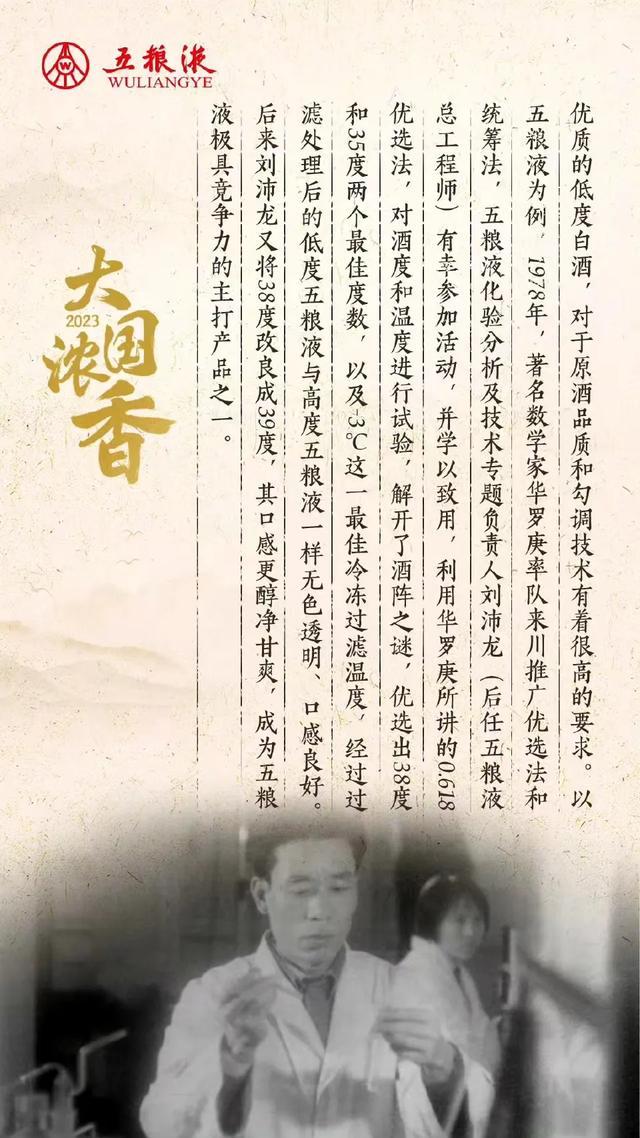 五粮液
WULIANGYE
优质的低度白酒，对于原酒品质和勾调技术有着很高的要求。以
五粮液为例，1978年，著名数学家华罗庚率队来川推广优选法和
统筹法，五粮液化验分析及技术专题负责人刘沛龙（后任五粮液
总工程师）有幸参加活动，并学以致用，利用华罗庚所讲的0.618
优选法，对酒度和温度进行试验，解开了酒阵之谜，优选出38度
和35度两个最佳度数，以及-3℃这一最佳冷冻过滤温度，经过过
滤处理后的低度五粮液与高度五粮液一样无色透明、口感良好。
后来刘沛龙又将38度改良成39度，其口感更醇净甘爽，成为五粮
液极具竞争力的主打产品之一。
大国浓香
2023